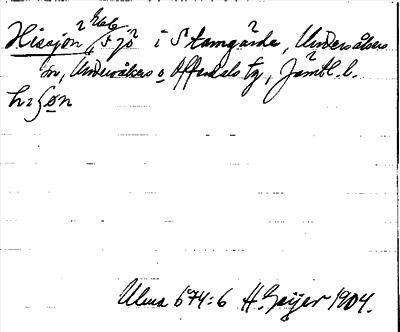 Hissjön, Sjö i Stamgärde, Undersåkers
sn, Undersåkers o Offerdals tg, Jämtl. l.
hiʃøn
Ulma 674:6 H. Geijer 1904.